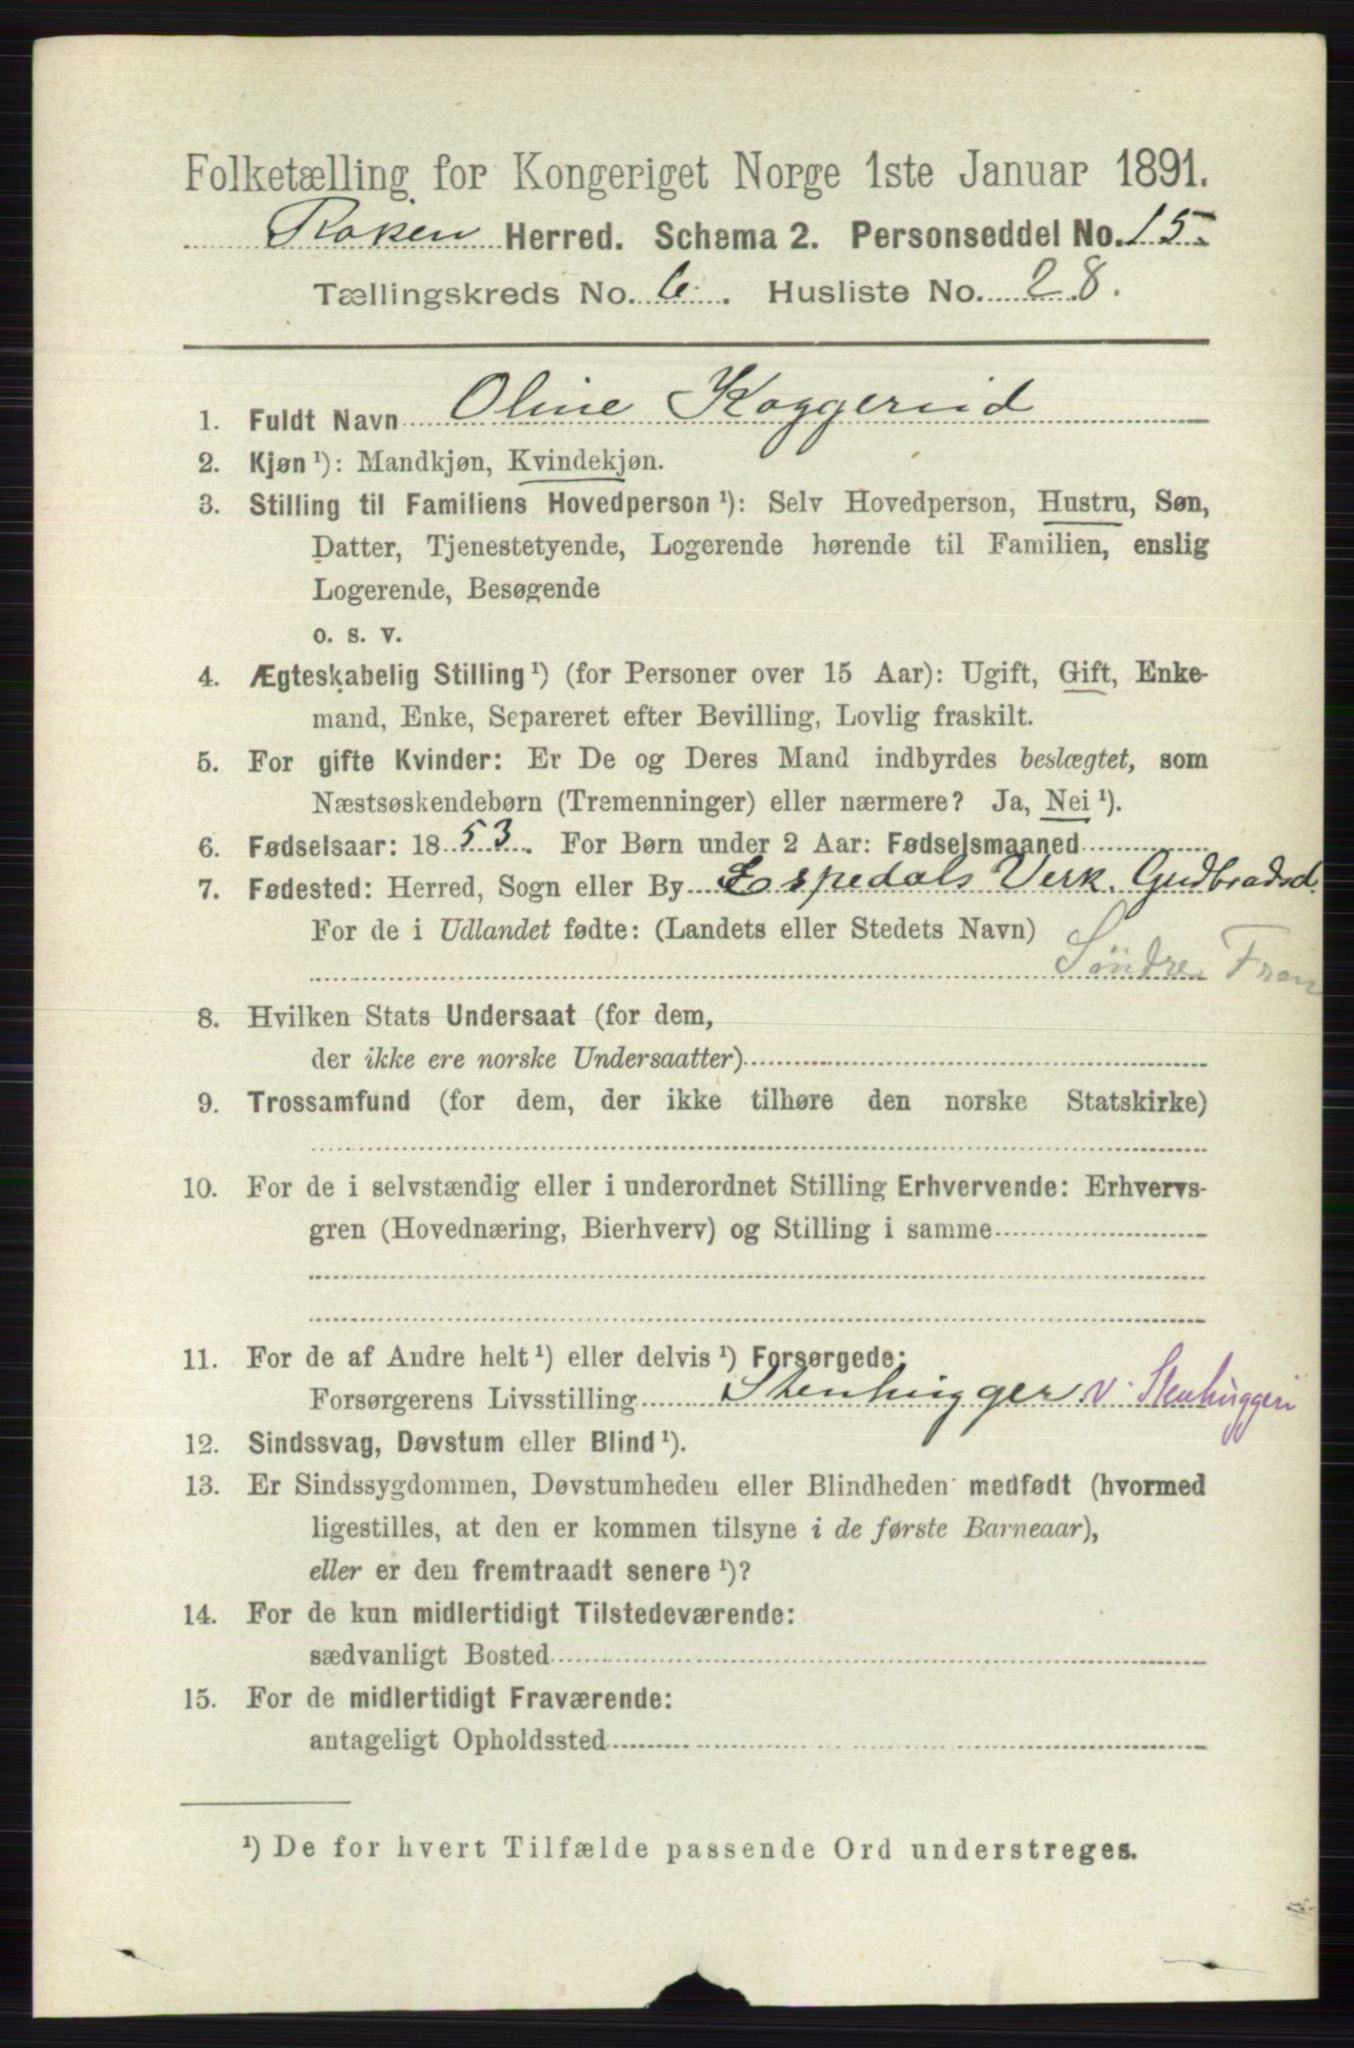 Folketælling for Kongeriget Norge 1ste Januar 1891.
Røken Herred. Schema 2. Personseddel No. 15.
Tællingskreds No. 6. Husliste No. 28.
1. Fuldt Navn Oline Koggerud
2. Kjøn ¹): Mandkjøn, Kvindekjøn.
3. Stilling til Familiens Hovedperson ¹): Selv Hovedperson, Hustru, Søn,
Datter, Tjenestetyende, Logerende hørende til Familien, enslig
Logerende, Besøgende
o. s. v.
4. Ægteskabelig Stilling ¹) (for Personer over 15 Aar): Ugift, Gift, Enke-
mand, Enke, Separeret efter Bevilling, Lovlig fraskilt.
5. For gifte Kvinder: Er De og Deres Mand indbyrdes beslægtet, som
Næstsøskendebørn (Tremenninger) eller nærmere? Ja, Nei ¹).
6. Fødselsaar: 1853. For Børn under 2 Aar: Fødselsmaaned
7. Fødested: Herred, Sogn eller By Espedals Verk. Gudbradsd.
For de i Udlandet fødte: (Landets eller Stedets Navn)
Söndre Fron
8. Hvilken Stats Undersaat (for dem,
der ikke ere norske Undersaatter)
9. Trossamfund (for dem, der ikke tilhøre den norske Statskirke)
10. For de i selvstændig eller i underordnet Stilling Erhvervende: Erhvervs-
gren (Hovednæring, Bierhverv) og Stilling i samme
11. For de af Andre helt ¹) eller delvis ¹) Forsørgede:
Forsørgerens Livsstilling Stenhugger v. Stenhuggeri
12. Sindssvag, Døvstum eller Blind ¹).
13. Er Sindssygdommen, Døvstumheden eller Blindheden medfødt (hvormed
ligestilles, at den er kommen tilsyne i de første Barneaar),
eller er den fremtraadt senere ¹)?
14. For de kun midlertidigt Tilstedeværende:
sædvanligt Bosted
15. For de midlertidigt Fraværende:
antageligt Opholdssted
¹) De for hvert Tilfælde passende Ord understreges.